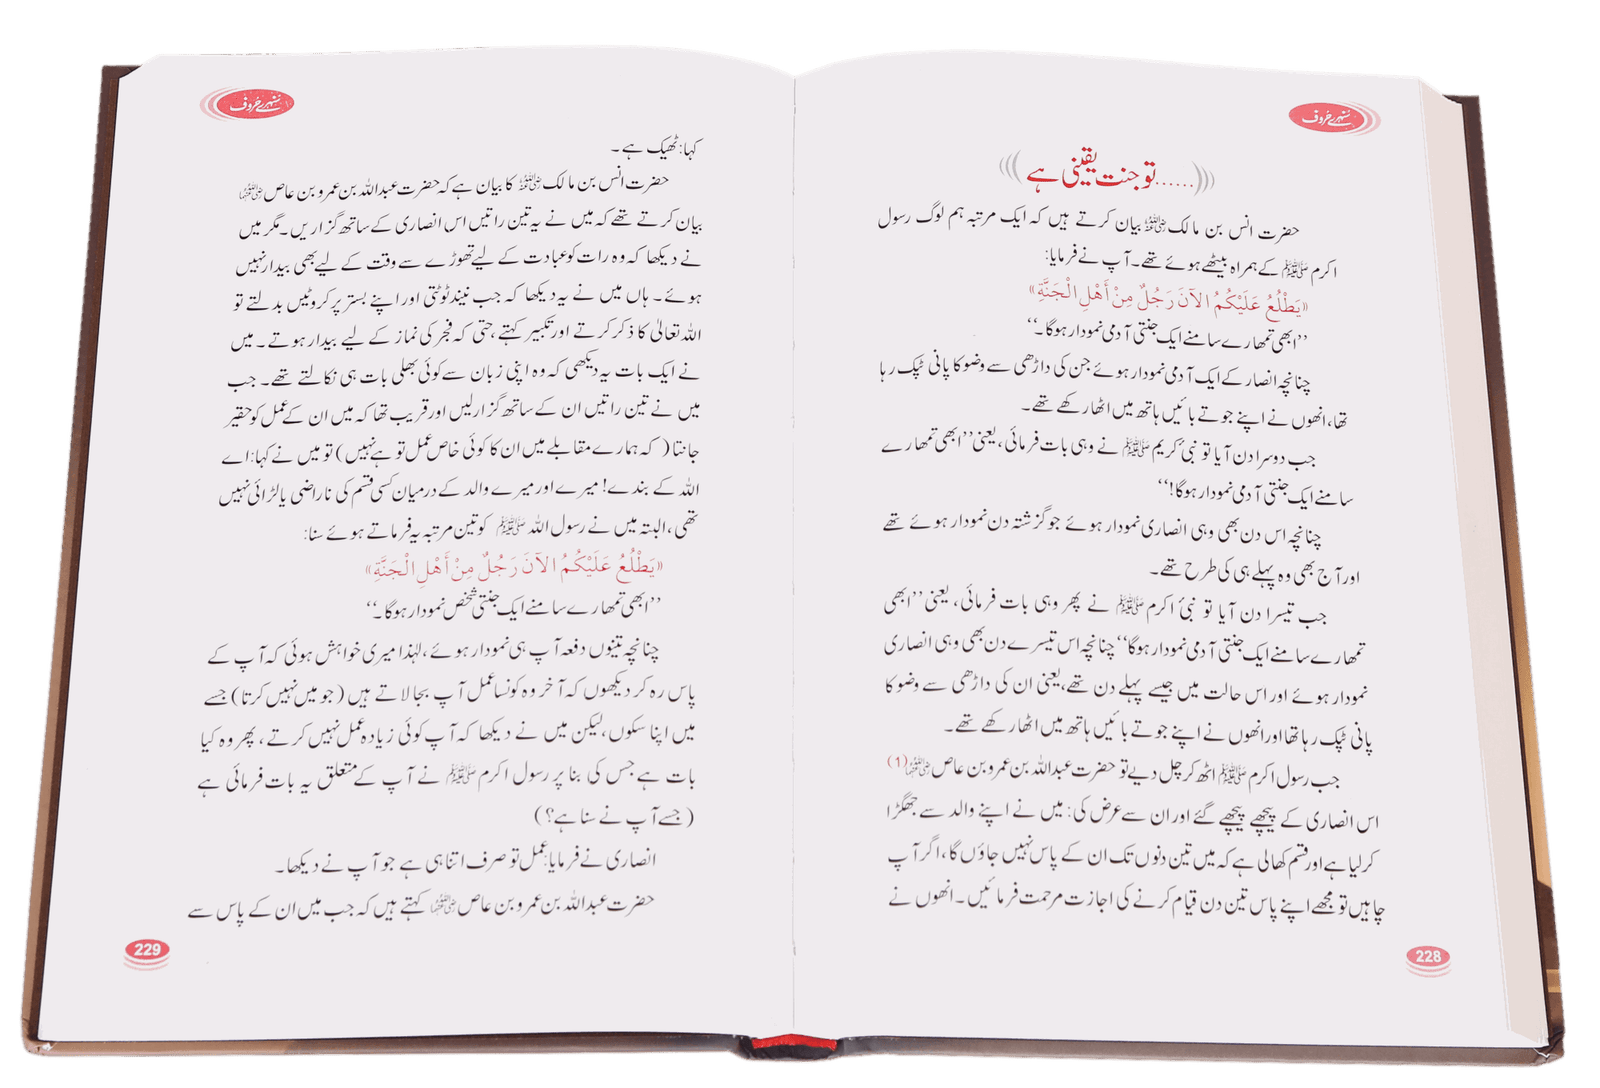 سنہرے حروف
......تو جنت یقینی ہے
حضرت انس بن مالک رضی اللہ عنہ بیان کرتے ہیں کہ ایک مرتبہ ہم لوگ رسول
اکرم ﷺ کے ہمراہ بیٹھے ہوئے تھے۔ آپ نے فرمایا:
«يَطْلُعُ عَلَيْكُمُ الآنَ رَجُلٌ مِنْ أَهْلِ الْجَنَّةِ»
’’ابھی تمھارے سامنے ایک جنتی آدمی نمودار ہوگا۔‘‘
چنانچہ انصار کے ایک آدمی نمودار ہوئے جن کی داڑھی سے وضو کا پانی ٹپک رہا
تھا، انھوں نے اپنے جوتے بائیں ہاتھ میں اٹھا رکھے تھے۔
جب دوسرا دن آیا تو نبیٔ کریم ﷺ نے وہی بات فرمائی، یعنی ’’ابھی تمھارے
سامنے ایک جنتی آدمی نمودار ہوگا!‘‘
چنانچہ اس دن بھی وہی انصاری نمودار ہوئے جو گزشتہ دن نمودار ہوئے تھے
اور آج بھی وہ پہلے ہی کی طرح تھے۔
جب تیسرا دن آیا تو نبیٔ اکرم ﷺ نے پھر وہی بات فرمائی، یعنی ’’ابھی
تمھارے سامنے ایک جنتی آدمی نمودار ہوگا‘‘ چنانچہ اس تیسرے دن بھی وہی انصاری
نمودار ہوئے اور اس حالت میں جیسے پہلے دن تھے، یعنی ان کی داڑھی سے وضو کا
پانی ٹپک رہا تھا اور انھوں نے اپنے جوتے بائیں ہاتھ میں اٹھا رکھے تھے۔
جب رسول اکرم ﷺ اٹھ کر چل دیے تو حضرت عبداللہ بن عمرو بن عاص رضی اللہ عنہما (1)
اس انصاری کے پیچھے پیچھے گئے اور ان سے عرض کی: میں نے اپنے والد سے جھگڑا
کر لیا ہے اور قسم کھا لی ہے کہ میں تین دنوں تک ان کے پاس نہیں جاؤں گا، اگر آپ
چاہیں تو مجھے اپنے پاس تین دن قیام کرنے کی اجازت مرحمت فرمائیں۔ انھوں نے
228
سنہرے حروف
کہا: ٹھیک ہے۔
حضرت انس بن مالک رضی اللہ عنہ کا بیان ہے کہ حضرت عبداللہ بن عمرو بن عاص رضی اللہ عنہما
بیان کرتے تھے کہ میں نے یہ تین راتیں اس انصاری کے ساتھ گزاریں۔ مگر میں
نے دیکھا کہ وہ رات کو عبادت کے لیے تھوڑے سے وقت کے لیے بھی بیدار نہیں
ہوئے۔ ہاں میں نے یہ دیکھا کہ جب نیند ٹوٹتی اور اپنے بستر پر کروٹیں بدلتے تو
اللہ تعالیٰ کا ذکر کرتے اور تکبیر کہتے، حتی کہ فجر کی نماز کے لیے بیدار ہوتے۔ میں
نے ایک بات یہ دیکھی کہ وہ اپنی زبان سے کوئی بھلی بات ہی نکالتے تھے۔ جب
میں نے تین راتیں ان کے ساتھ گزار لیں اور قریب تھا کہ میں ان کے عمل کو حقیر
جانتا (کہ ہمارے مقابلے میں ان کا کوئی خاص عمل تو ہے نہیں) تو میں نے کہا: اے
اللہ کے بندے! میرے اور میرے والد کے درمیان کسی قسم کی ناراضی یا لڑائی نہیں
تھی، البتہ میں نے رسول اللہ ﷺ کو تین مرتبہ یہ فرماتے ہوئے سنا:
«يَطْلُعُ عَلَيْكُمُ الآنَ رَجُلٌ مِنْ أَهْلِ الْجَنَّةِ»
’’ابھی تمھارے سامنے ایک جنتی شخص نمودار ہوگا۔‘‘
چنانچہ تینوں دفعہ آپ ہی نمودار ہوئے، لہٰذا میری خواہش ہوئی کہ آپ کے
پاس رہ کر دیکھوں کہ آخر وہ کونسا عمل آپ بجا لاتے ہیں (جو میں نہیں کرتا) جسے
میں اپنا سکوں، لیکن میں نے دیکھا کہ آپ کوئی زیادہ عمل نہیں کرتے، پھر وہ کیا
بات ہے جس کی بنا پر رسول اکرم ﷺ نے آپ کے متعلق یہ بات فرمائی ہے
(جسے آپ نے سنا ہے؟)
انصاری نے فرمایا: عمل تو صرف اتنا ہی ہے جو آپ نے دیکھا۔
حضرت عبداللہ بن عمرو بن عاص رضی اللہ عنہما کہتے ہیں کہ جب میں ان کے پاس سے
229